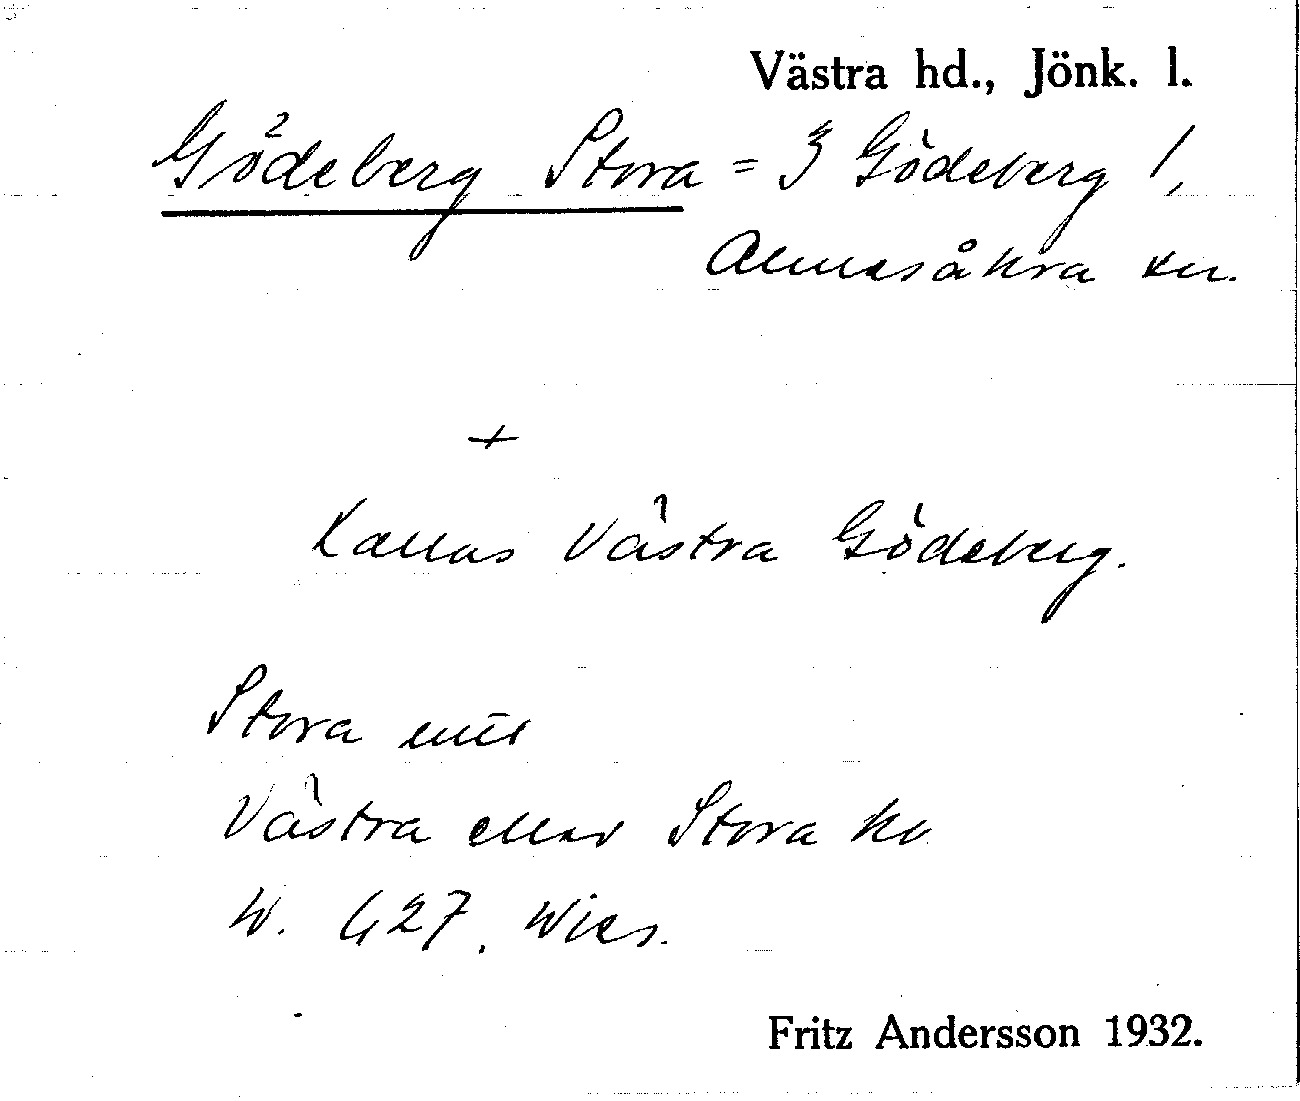 Västra hd., Jönk. l.
Gödeberg Stora = 3 Gödeberg 1,
Almesåkra sn.
+
Kallas Västra Gödeberg.
Stora
Västra eller Stora
W. 427.
Fritz Andersson 1932.